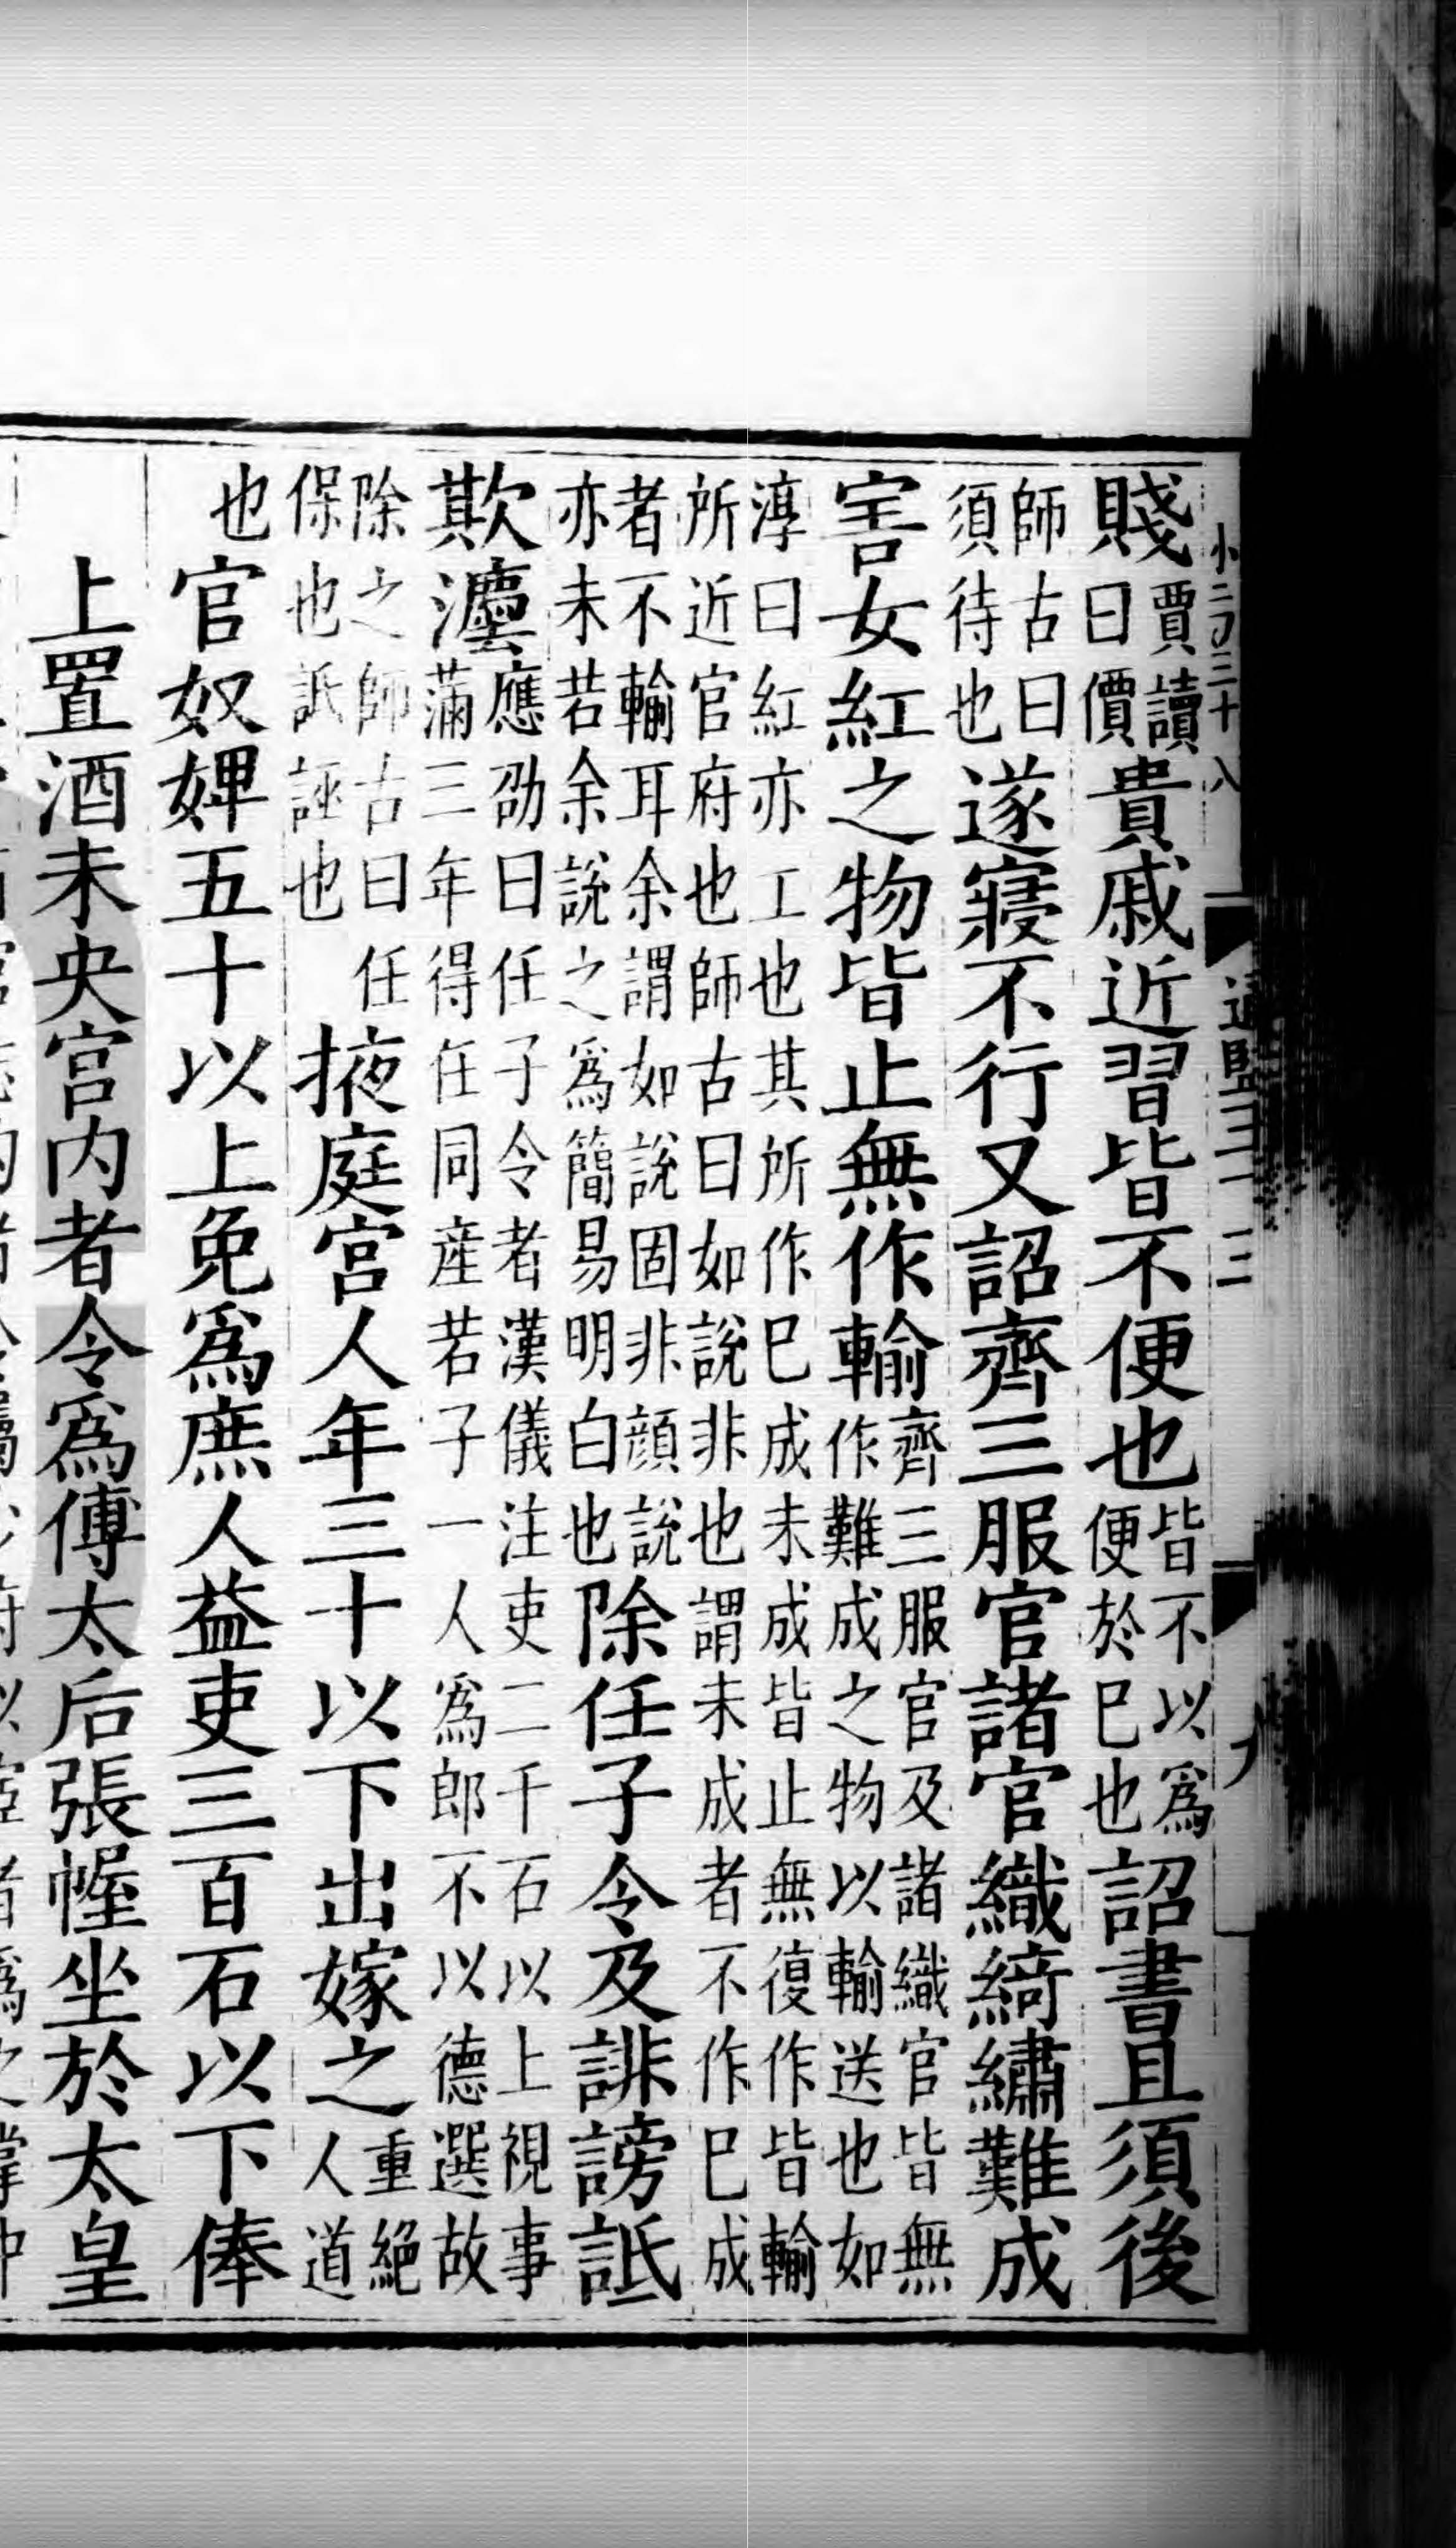 賤賈讀曰價貴戚近習皆不便也皆不以為便於巳也詔書且須後
師古曰須待也遂寢不行又詔齊三服官諸官織綺繡難成
害女紅之物皆止無作輸齊三服官及諸織官皆無作難成之物以輸送也如
淳曰紅亦工也其所作巳成未成皆止無復作皆輸所近官府也師古曰如說非也謂未成者不作巳成
者不輸耳余謂如說固非顔說亦未若余說之爲簡易明白也除任子令及誹謗詆
欺灋應劭曰任子令者漢儀注吏二千石以上視事滿三年得任同産若子一人爲郎不以德選故
除之師古曰任保也詆誣也掖庭宮人年三十以下出嫁之重絕人道
也官奴婢五十以上免爲庶人益吏三百石以下俸
上置酒未央宮内者令爲傅太后張幄坐於太皇